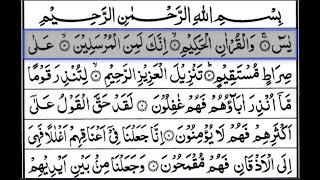 بِسْمِ اللّٰهِ الرَّحْمٰنِ الرَّحِيْمِ
يٰسٓ ۚ وَالْقُرْاٰنِ الْحَكِيْمِ ۙ اِنَّكَ لَمِنَ الْمُرْسَلِيْنَ ۙ عَلٰى
صِرَاطٍ مُّسْتَقِيْمٍ ؕ تَنْزِيْلَ الْعَزِيْزِ الرَّحِيْمِ ۙ لِتُنْذِرَ قَوْمًا
مَّاۤ اُنْذِرَ اٰبَآؤُهُمْ فَهُمْ غٰفِلُوْنَ لَقَدْ حَقَّ الْقَوْلُ عَلٰۤى
اَكْثَرِهِمْ فَهُمْ لَا يُؤْمِنُوْنَ اِنَّا جَعَلْنَا فِيْۤ اَعْنَاقِهِمْ اَغْلٰلًا فَهِيَ
اِلَى الْاَذْقَانِ فَهُمْ مُّقْمَحُوْنَ وَجَعَلْنَا مِنْۢ بَيْنِ اَيْدِيْهِمْ